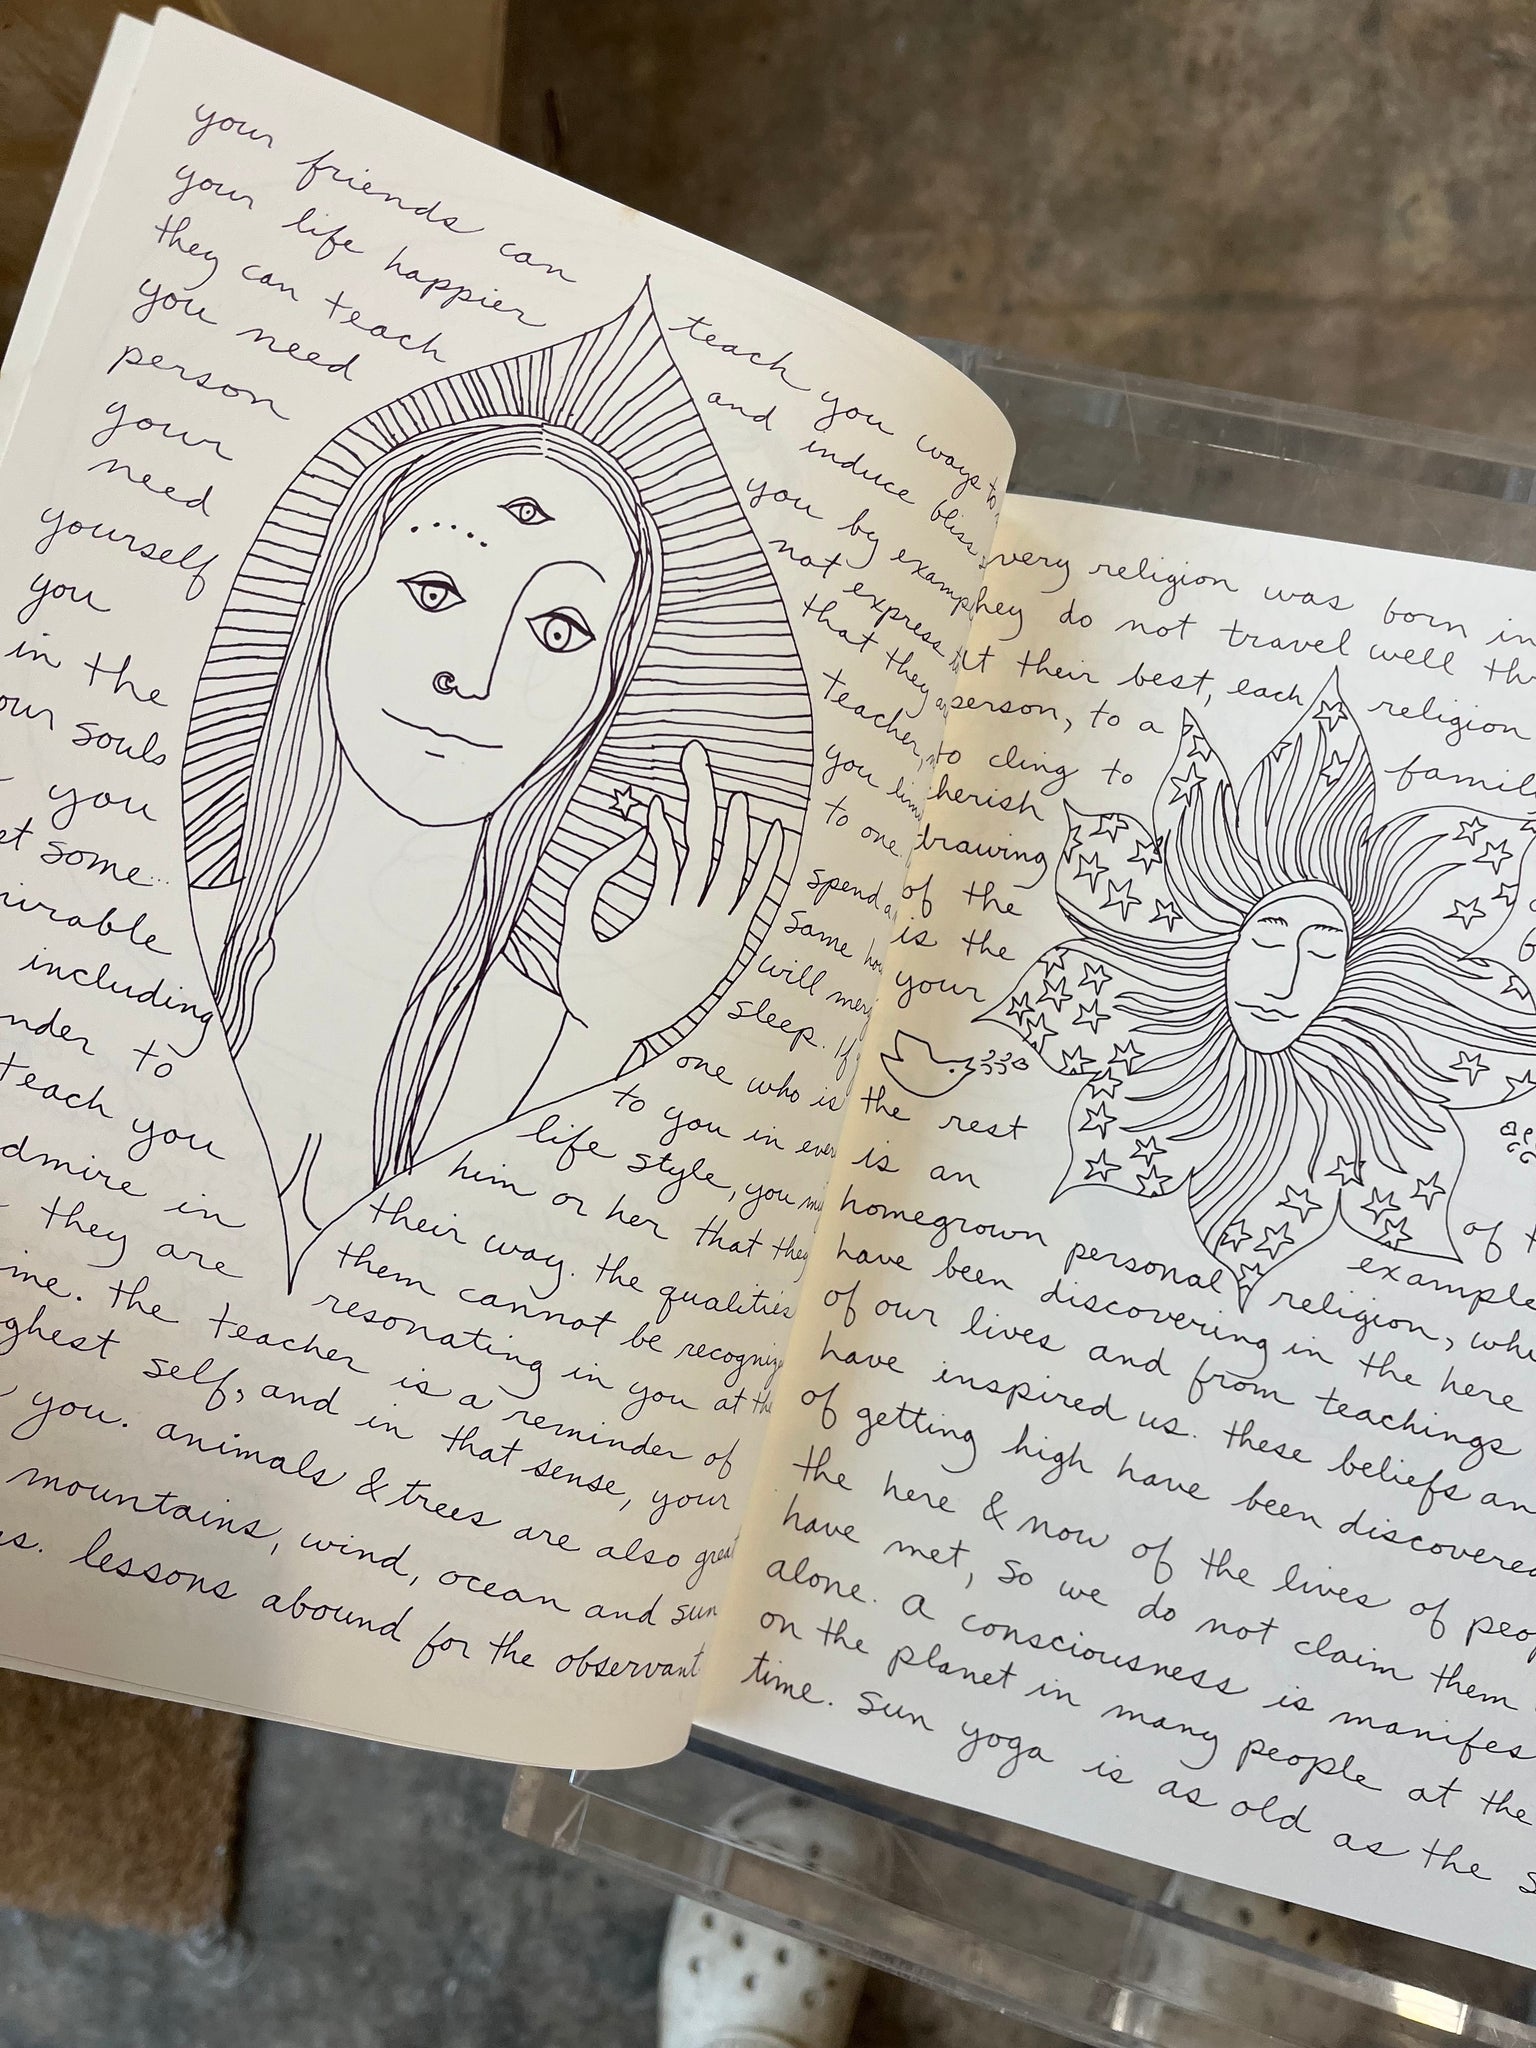 your friends can teach you ways to
your life happier and induce bliss
they can teach you by examp
you need not express
person that they
your teacher,
need you
yourself to one
you spend
in the same
our souls will
you sleep. If
et some... one who is
to you in ever
including life style, you
nder to him or her that they
teach you their way. the qualities
dmire in them cannot be recogniz
they are resonating in you at the
ime. the teacher is a reminder of
ghest self, and in that sense, your
you. animals & trees are also great
mountains, wind, ocean and sun
s. lessons abound for the observant
very religion was born in
hey do not travel well
t their best, each religion
person, to a
to cling to famil
herish
drawing
of the
is the
your
the rest
is an
homegrown personal religion, whi
of
example
have been discovering in the here
of our lives and from teachings
have inspired us. these beliefs an
of getting high have been discovered
the here & now of the lives of peop
have met, so we do not claim them
alone. a consciousness is manifes
on the planet in many people at the
time. sun yoga is as old as the s